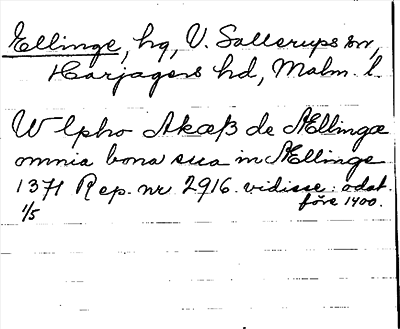 Ellinge, hg, V. Sallerups sn,
Harjagers hd, Malm. l.
Wlpho Akæß de Ællingæ
omnia bona sua in Ællinge
1371 Rep. nr 2916. vidisse: odat.
1/5 före 1400.